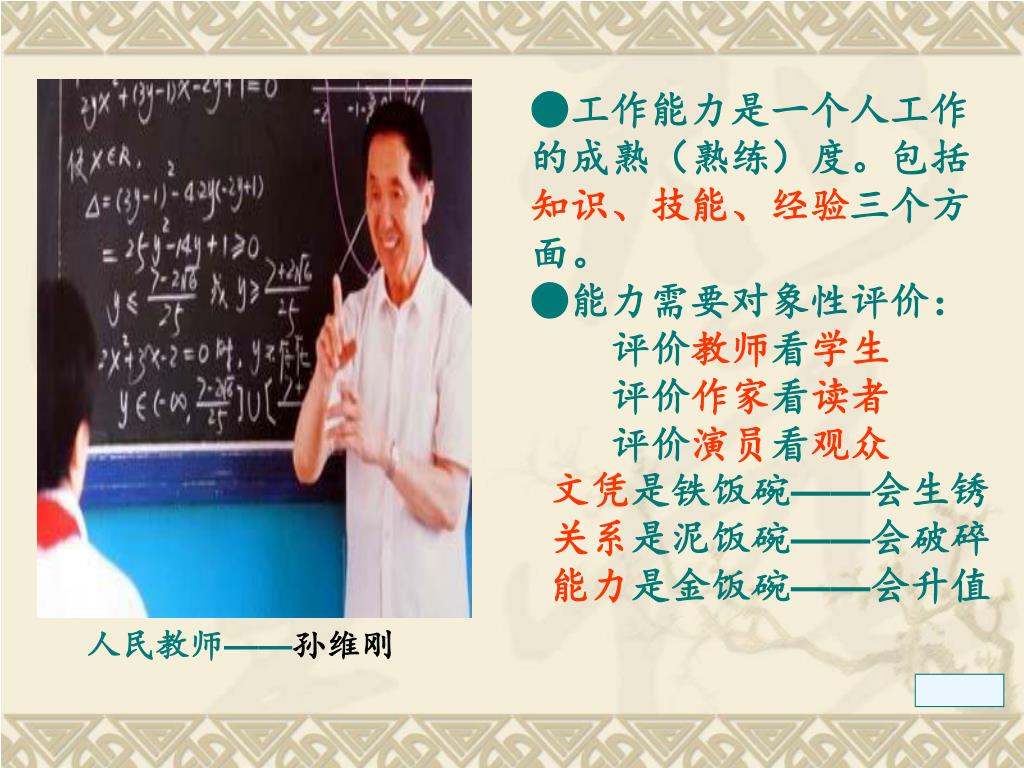 2yx²+(3y-1)x-2y+1=0
x∈R,
Δ=(3y-1)²-4·2y(-2y+1)
=25y²-14y+1≥0
y≤ 7-2√6/25 或 y≥ 7+2√6/25
2x²+3x-2=0时,
y∈(-∞, 7-2√6/25]∪[
人民教师——孙维刚
●工作能力是一个人工作
的成熟（熟练）度。包括
知识、技能、经验三个方
面。
●能力需要对象性评价：
评价教师看学生
评价作家看读者
评价演员看观众
文凭是铁饭碗——会生锈
关系是泥饭碗——会破碎
能力是金饭碗——会升值